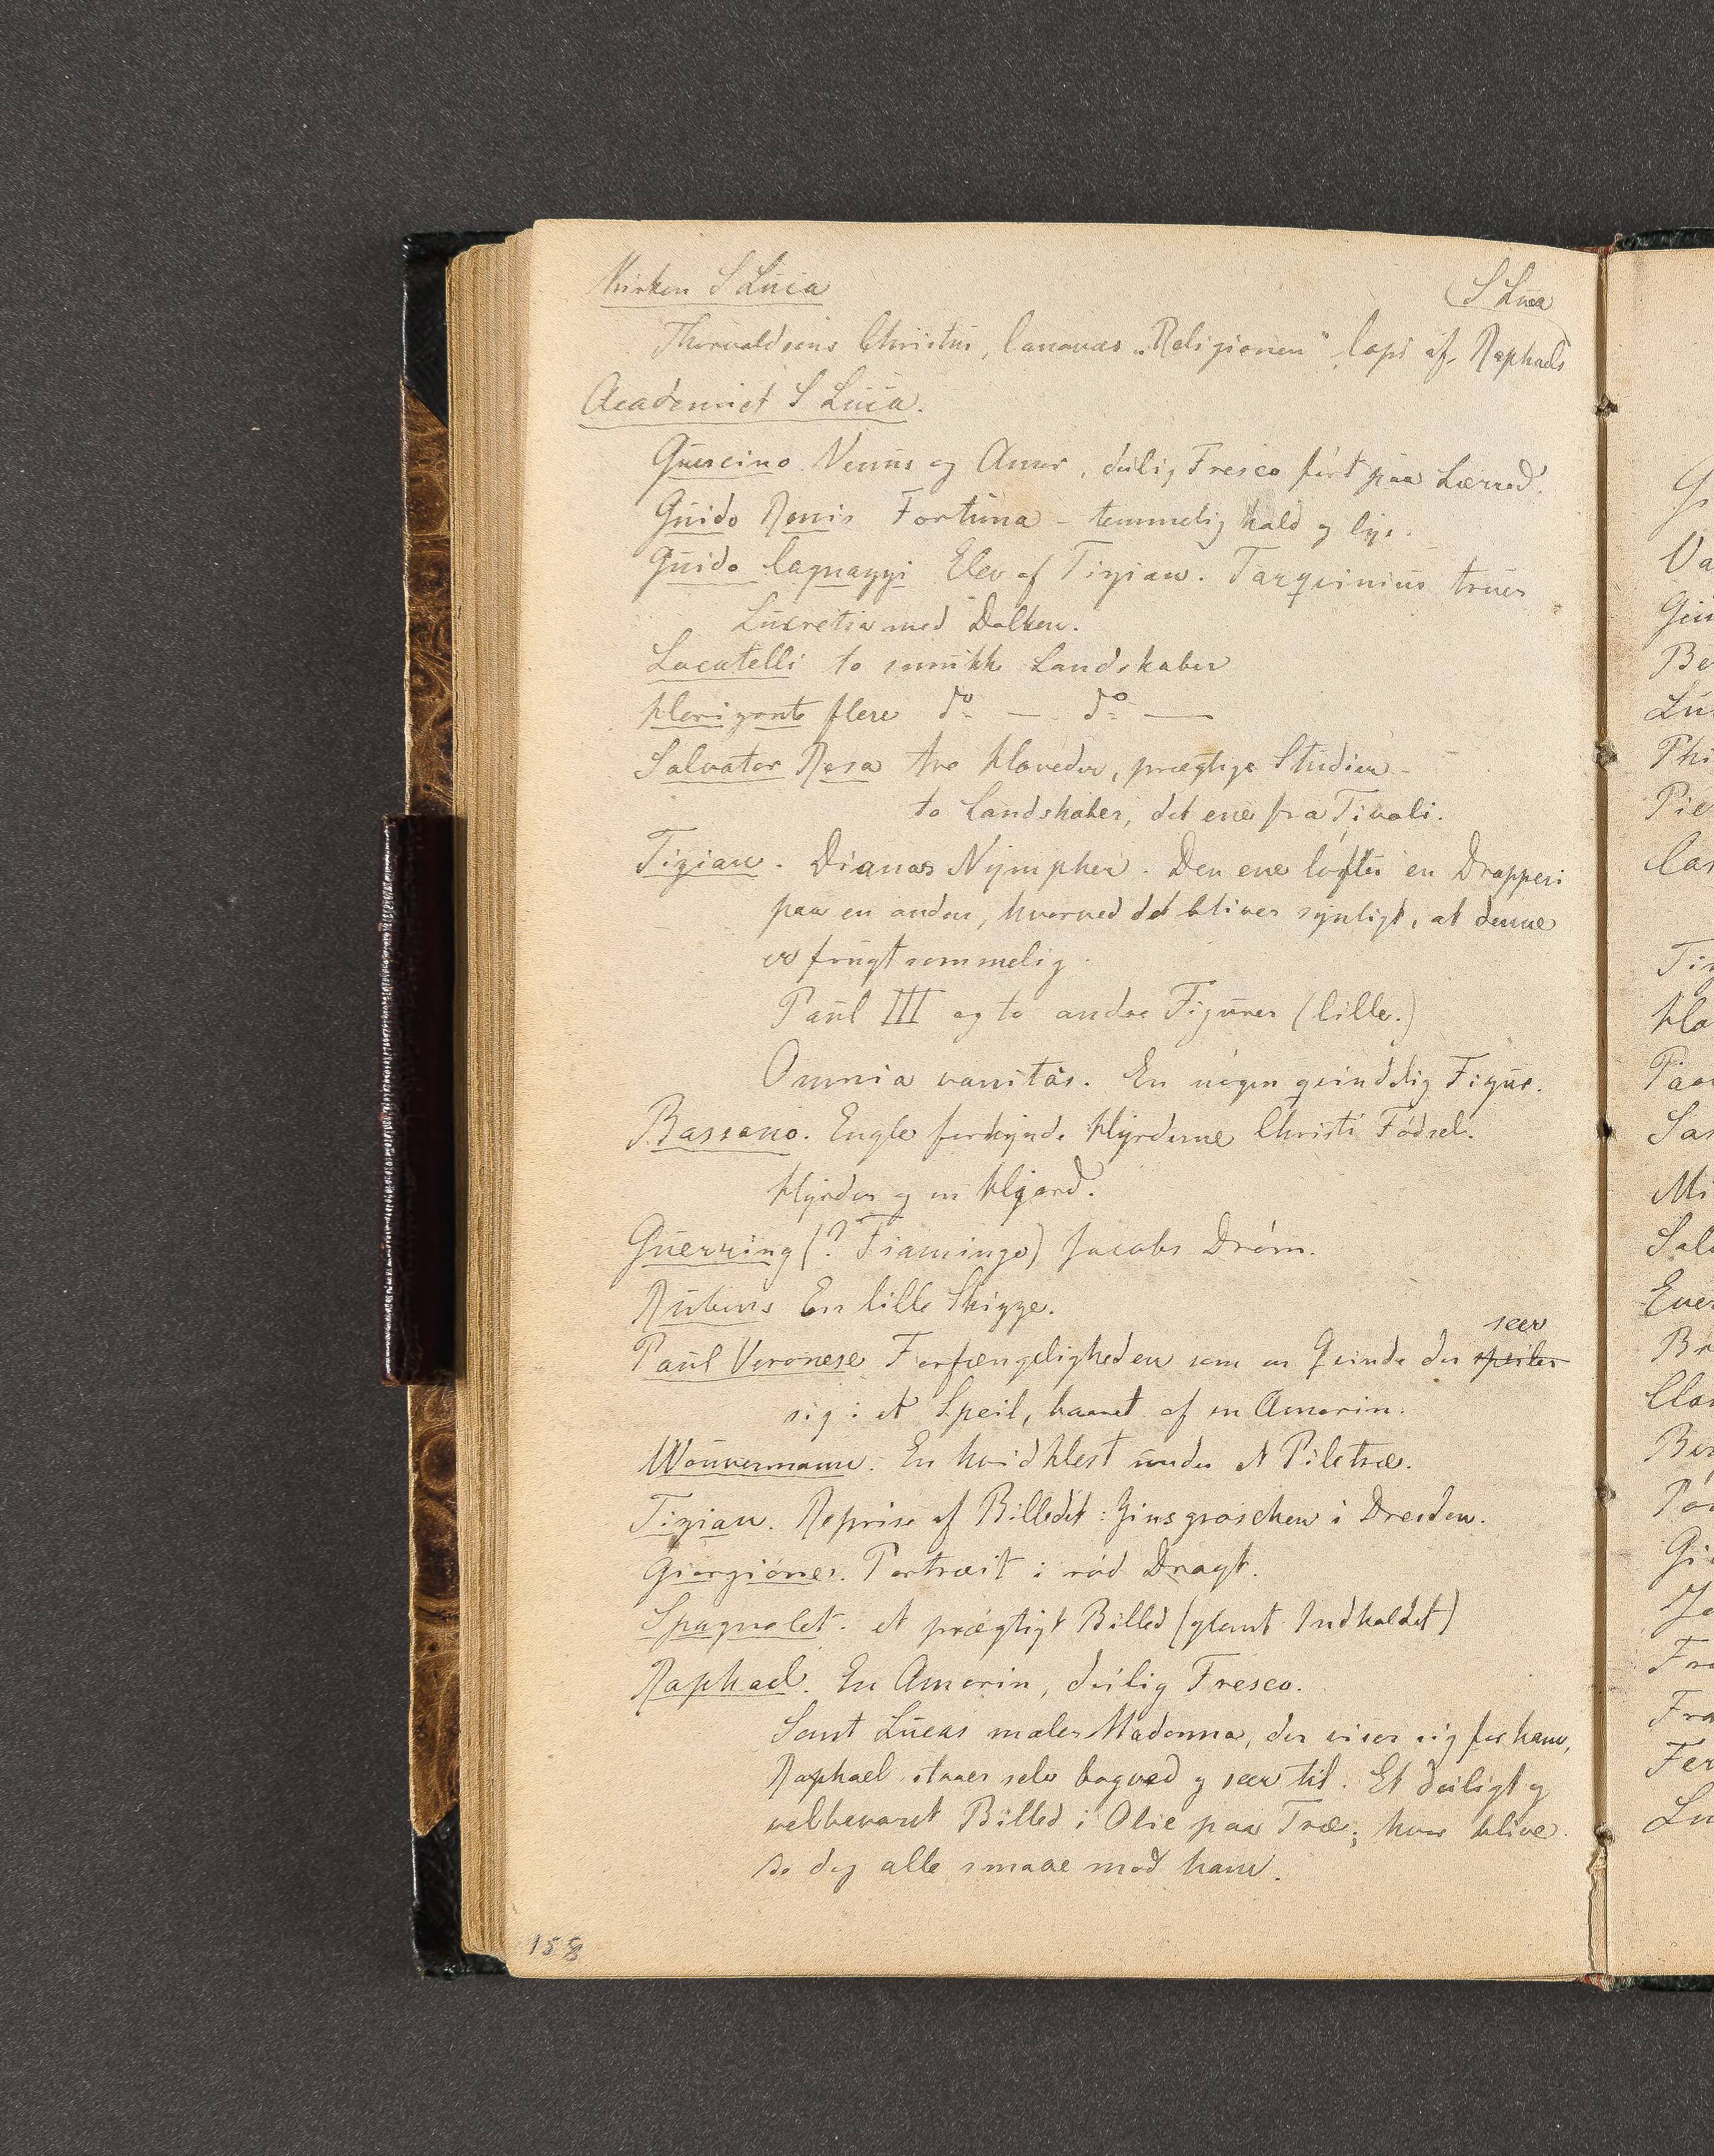 Kirken S Lucia
(S Luca
Thorvaldsens Christus, Canovas „Religionen" Copi af Raphaels
Academiet S Lucia.
Guercino. Venus og Amor, deilig Fresco ført paa Lærred.
Guido Renis Fortuna - temmelig kold og lys.
Guido Cagnazzi Elev af Tizian. Tarqvinius truer
Lucretia med Dolken.
Locatelli to smukke Landskaber
Horizonte flere do — do —
Salvator Rosa tre Hoveder, prægtige Studier -
to Landskaber, det ene fra Tivoli.
Tizian. Dianas Nympher. Den ene løfter en Drapperi
paa en anden, hvorved det bliver synligt, at denne
er frugtsommelig.
Paul III og to andre Figurer (lille.)
Omnia vanitas. En nøgen qvindelig Figur.
Bassano. Engle forkynde Hyrderne Christi Fødsel.
Hyrder og en Hjord.
Guerring (? Fiamingo) Jacobs Drøm.
Rubens En lille Skizze.
seer
Paul Veronese Forfængeligheden som en Qvinde der speiler
sig i et Speil, baaret af en Amorin.
Wouvermann. En hvid Hest under et Piletræ.
Tizian. Reprise af Billedet: Zinsgroschen i Dresden.
Giorgiones. Portrait i rød Dragt.
Spagnolet. et prægtigt Billed (glemt Indholdet)
Raphael. En Amorin, deilig Fresco.
Sanct Lucas maler Madonna, der viser sig for ham,
Raphael staaer selv bagved og seer til. Et deiligt og
velbevaret Billed i Olie paa Træ; hvor blive
de dog alle smaae mod ham.
158